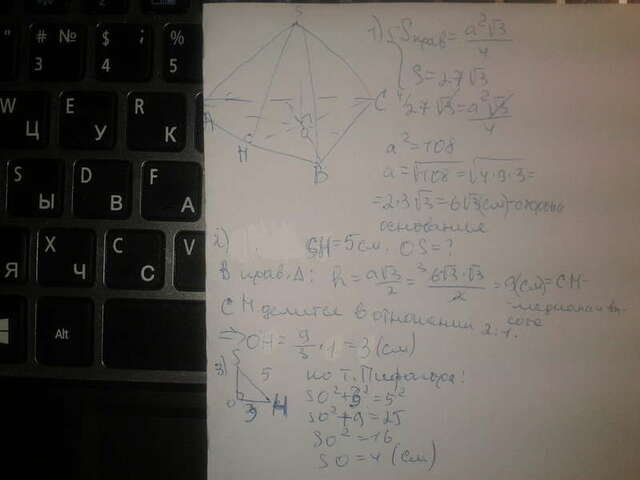 " # № $ %
3 4 ; 5
W Ц E У R К
S Ы D В F А
X Ч C С V
Я
Alt
S
A C
H O
B
1) Sправ = a²√3/4
S = 27√3
27√3 = a²√3/4
a² = 108
a = √108 = √4·9·3 =
= 2·3√3 = 6√3(см) - сторона
основания
2) SH = 5 см. OS = ?
В прав. Δ: h = a√3/2 = 6√3·√3/2 = 9(см) = CH -
медиана и высота
CH делится в отношении 2:1.
⇒ OH = 9/3 · 1 = 3 (см)
3) S
5
O 3 H
по т. Пифагора:
SO² + 3² = 5²
SO² + 9 = 25
SO² = 16
SO = 4 (см)